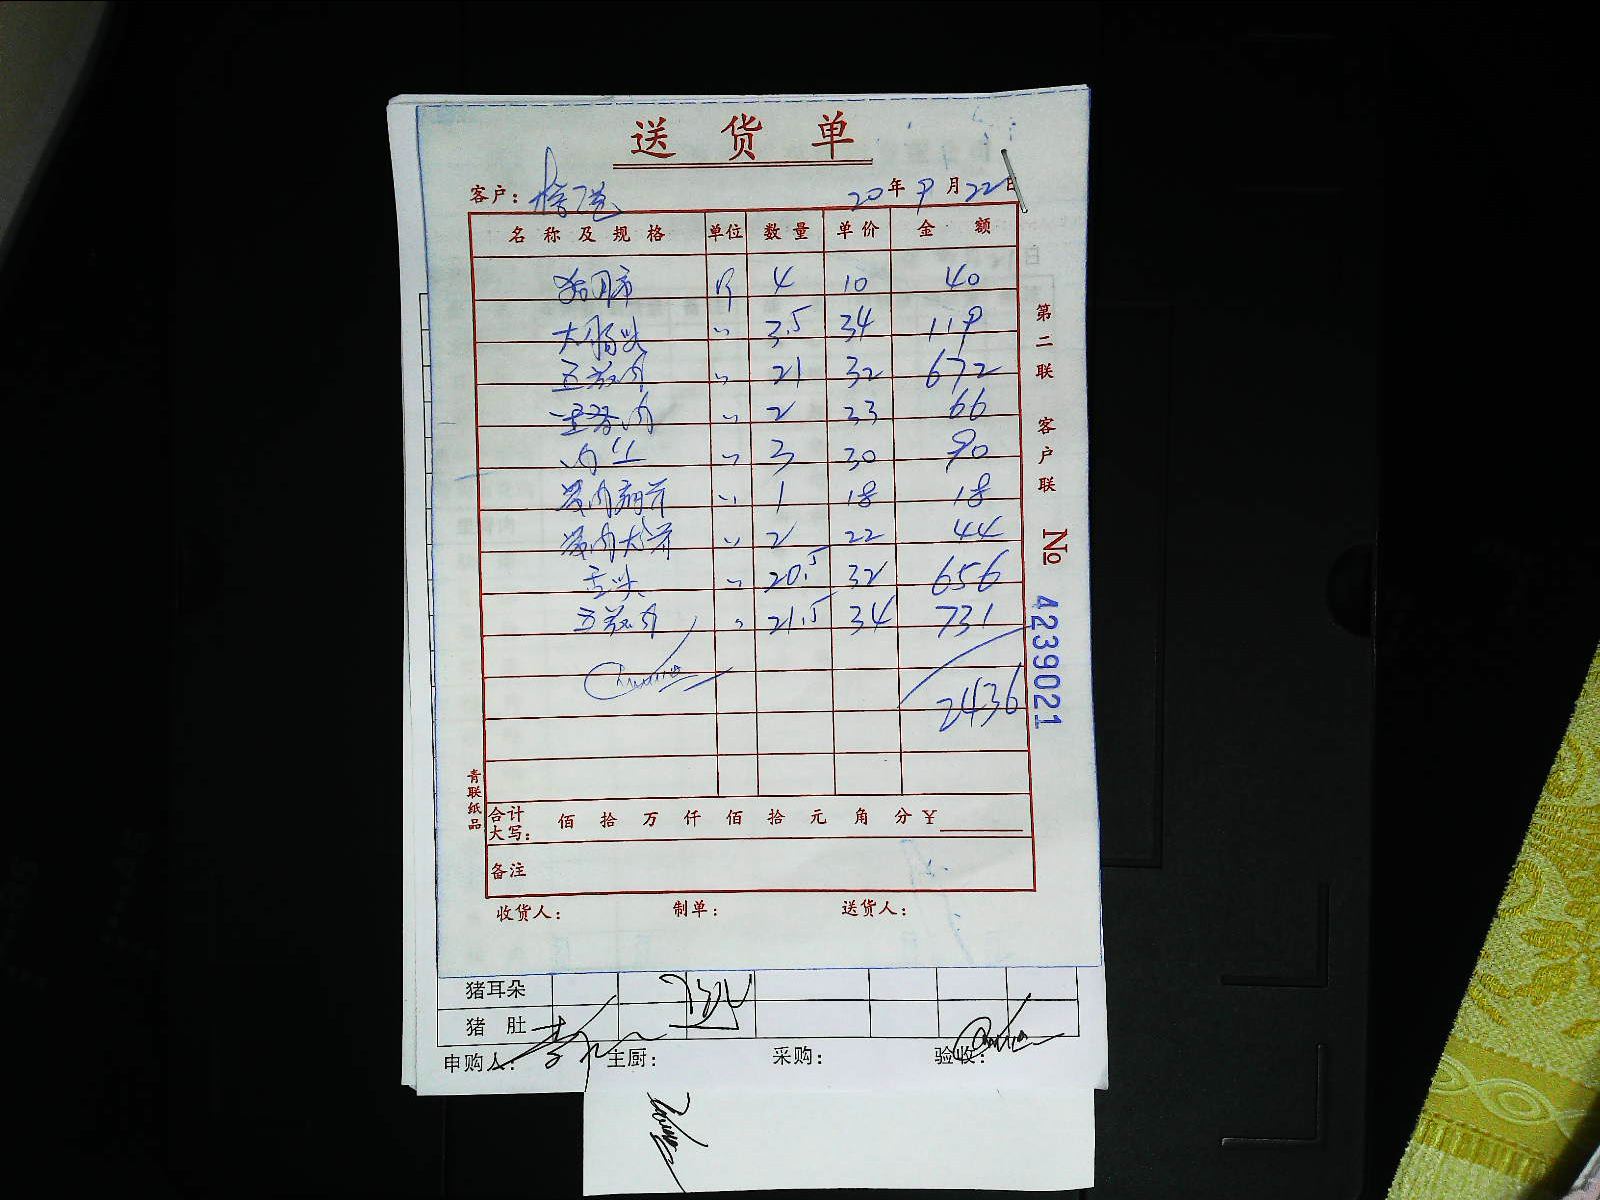 送货单
客户: 20年9月22日
名称及规格 单位 数量 单价 金额
猪肺 个 4 10 40
大肠头 〃 3.5 34 119
五花肉 〃 21 32 672
里脊肉 〃 2 33 66
肉丝 〃 3 30 90
〃 1 18 18
〃 2 22 44
舌头 〃 20.5 32 656
五花肉 〃 21.5 34 731
2436
合计大写: 佰 拾 万 仟 佰 拾 元 角 分 ¥
备注
收货人: 制单: 送货人:
第二联 客户联
№ 4239021
青联纸品
猪耳朵
猪肚
申购人: 主厨: 采购: 验收: